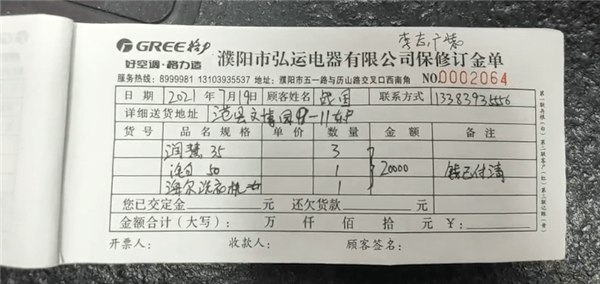 李志广帮
GREE格力
好空调·格力造
濮阳市弘运电器有限公司保修订金单
服务热线：8999981 13103935537 地址：濮阳市五一路与历山路交叉口西南角 NO.0002064
日期 2021年7月19日 顾客姓名 联系方式 13383935556
详细送货地址 范县文博园9-11东户
货号 品名规格 单价 数量 金额 备注
润慧35 3
50 1 20000 钱已付清
海尔洗衣机 1
您已交定金 元 还欠货款 元
金额合计（大写）： 万 仟 佰 拾 元 ¥：
开票人： 收款人： 顾客签名：
第一联存根（白）第二联客户（红）第三联记账（黄）